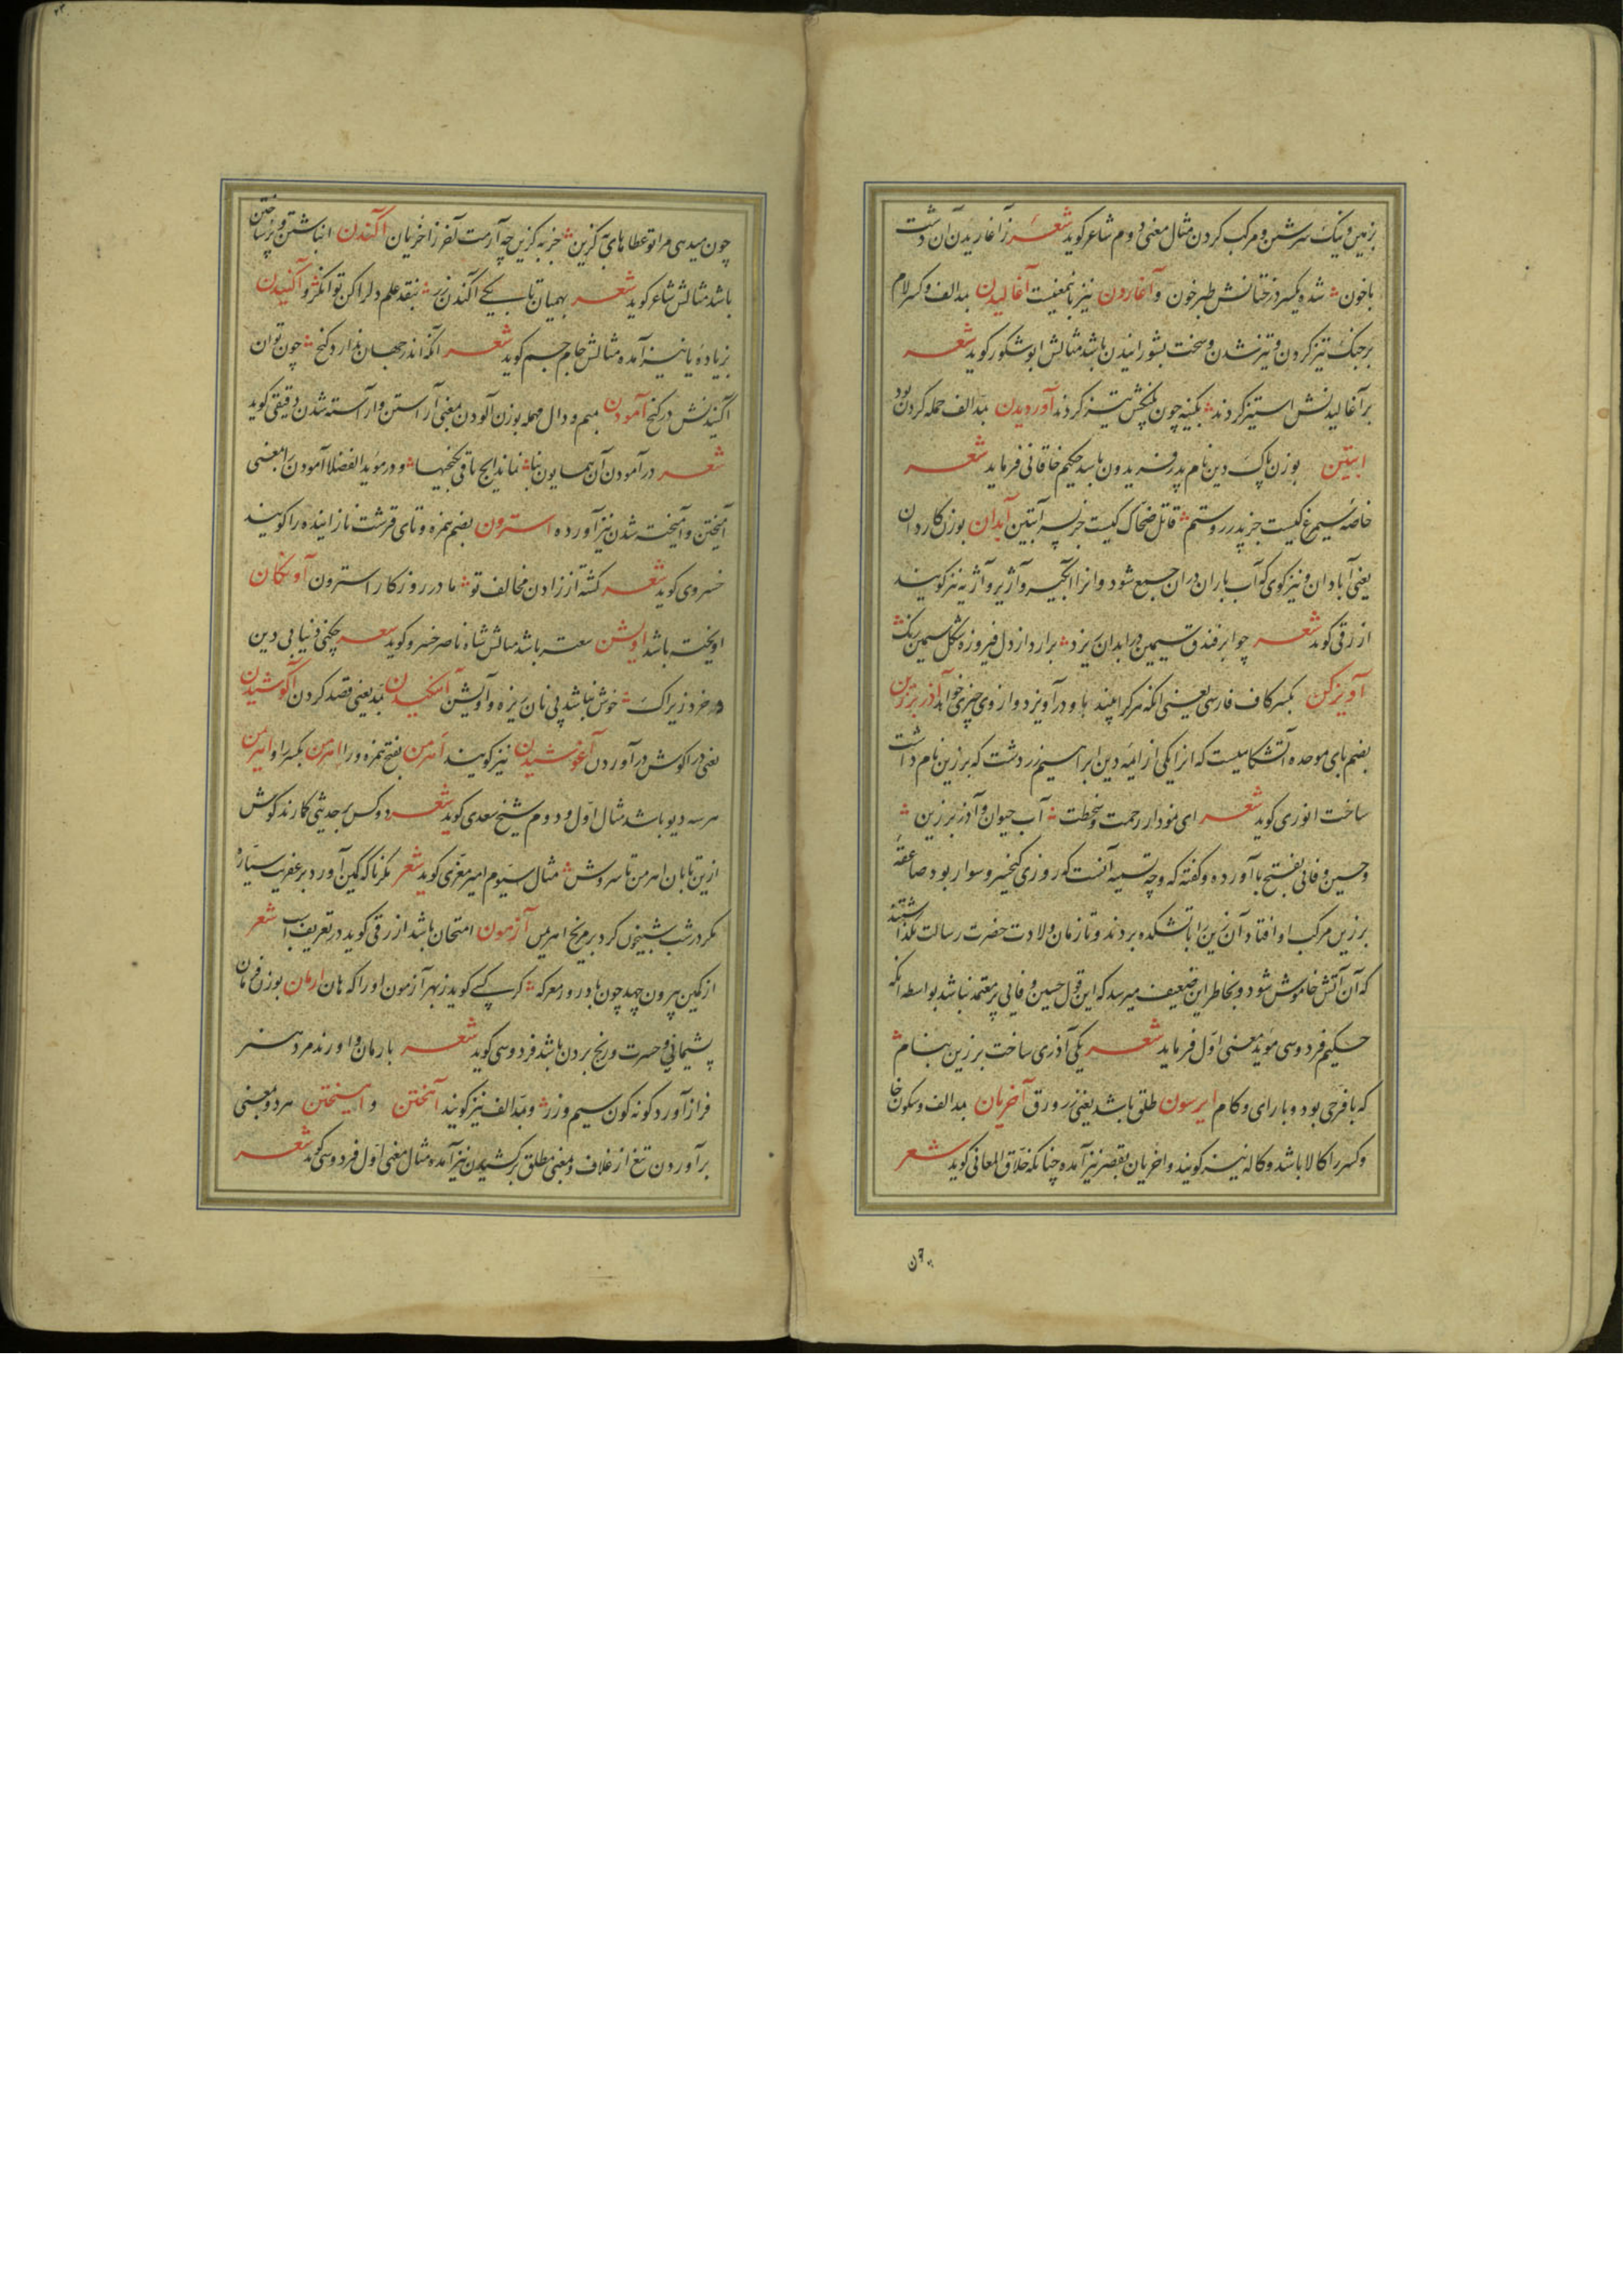 بزمین و نیک سرشتن و مرکب کردن مثال معنی دوم شاعر کوید شعر ز آغاریدن آن دشت
باخون شد و یکسر درختانش طبرخون و آغاردن نیز باینمعنیست آغالیدن بمد الف و کسر لام
بر جنک تیز کردن و تیز شدن و سخت بشورانیدن باشد مثالش ابوشکور کوید شعر
بر آغالیدنش استیز کردند بکینه چون تیز کردند آوردیدن بمد الف حمله کردن بود
ابتین بوزن پاک دین نام پدر فریدون باشد حکیم خاقانی فرماید شعر
خاصه سیمرغ کیست جز پدر روستم قاتل ضحاک کیست جز پسر آبتین آبدان بوزن کاردان
یعنی آبادان و نیز کوی که آب باران دران جمع شود و انرا آبکیر و آژیر و آژیه نیز کویند
ازرقی کوید شعر چو ابر فندق سیمین در ابدان ریزد برارد از دل فیروزه شکل سیمین رنک
آویزکن بکسر کاف فارسی یعنی انکه هر کرا بیند با او درآویزد و از وی چیزی خواهد آذر برزین
بضم بای موحده آتشکاهیست که انرا یکی از ایمه دین ابراهیم زردشت که برزین نام داشت
ساخت انوری کوید شعر ای نمودار رحمت و سخطت آب حیوان و آذر برزین
و حسین وفائی بفتح با آورده و کفته که وجه تسمیه آنست که روزی کیخسرو سوار بود صاعقه
بر زین مرکب او افتاد آن زین را باتشکده بردند و تا زمان ولادت حضرت رسالت نکذاشتند
که آن آتش خاموش شود و بخاطر این ضعیف میرسد که این قول حسین وفایی پر معتمد نباشد بواسطه انکه
حکیم فردوسی موید معنی اول فرماید شعر یکی آذری ساخت برزین بنام
که با فرخی بود و با رای و کام ایرسون طلق باشد یعنی زرورق آخریان بمد الف و سکون خا
و کسر را کالا باشد و کاله نیز کویند و اخریان بقصر نیز آمده چنانکه خلاق المعانی کوید شعر
چون میدهی مرا تو عطاهای به کزین جز به کزین چه آرمت آخر ز اخریان آکندن انباشتن و پر ساختن
باشد مثالش شاعر کوید شعر بهمیان تا بکی آکندن زر بنقد علم دل را کن توانکر و آکنیدن
بزیاده یا نیز آمده مثالش جام جم کوید شعر آنکه اندر جهان ندارد کنج چون توان
آکنیدنش در کنج آمودن بمیم و دال مهمله بوزن آلودن بمعنی آراستن و آراسته شدن دقیقی کوید
شعر در آمودن آن همایون بنا نماند ایچ باقی بکنجها و در موید الفضلا آمودن را بمعنی
آمیختن و آمیخته شدن نیز آورده استرون بضم همزه و تای قرشت نازاینده را کویند
خسروی کوید شعر کشته از زادن مخالف تو مادر روزکار استرون آونکان
اویخته باشد اویشن سعتر باشد مثالش شاه ناصر خسرو کوید شعر چکنی دنیا بی دین
و خرد زیراک خوش نباشد بی نان بریزه و آویشن آهنکیدن بمد یعنی قصد کردن آکوشیدن
یعنی در اکوش درآوردن آغوشیدن نیز کویند اهرمن بفتح همزه و را اهرمن بکسر را و اهریمن
هر سه دیو باشد مثال اول و دوم شیخ سعدی کوید شعر دو کس بر حدیثی کمارند کوش
ازین تا بان اهرمن تا سروش مثال سیوم امیر معزی کوید شعر مکر ناکه کمین آورد بر عفریت سیاره
مکر در شب شبیخون کرد بر مریخ اهریمن آزمون امتحان باشد ازرقی کوید در تعریف اسب شعر
از کمین بیرون جهد چون باد روز معرکه کر کسی کوید ز بهر آزمون او را که هان ارمان بوزن فرمان
پشیمانی و حسرت و رنج بردن باشد فردوسی کوید شعر بارمان و اورند مرد هنر
فراز آورد کونه کون سیم و زر و بمد الف نیز کویند آهختن و اهیختن هر دو بمعنی
برآوردن تیغ از غلاف و بمعنی مطلق برکشیدن نیز آمده مثال معنی اول فردوسی کوید شعر